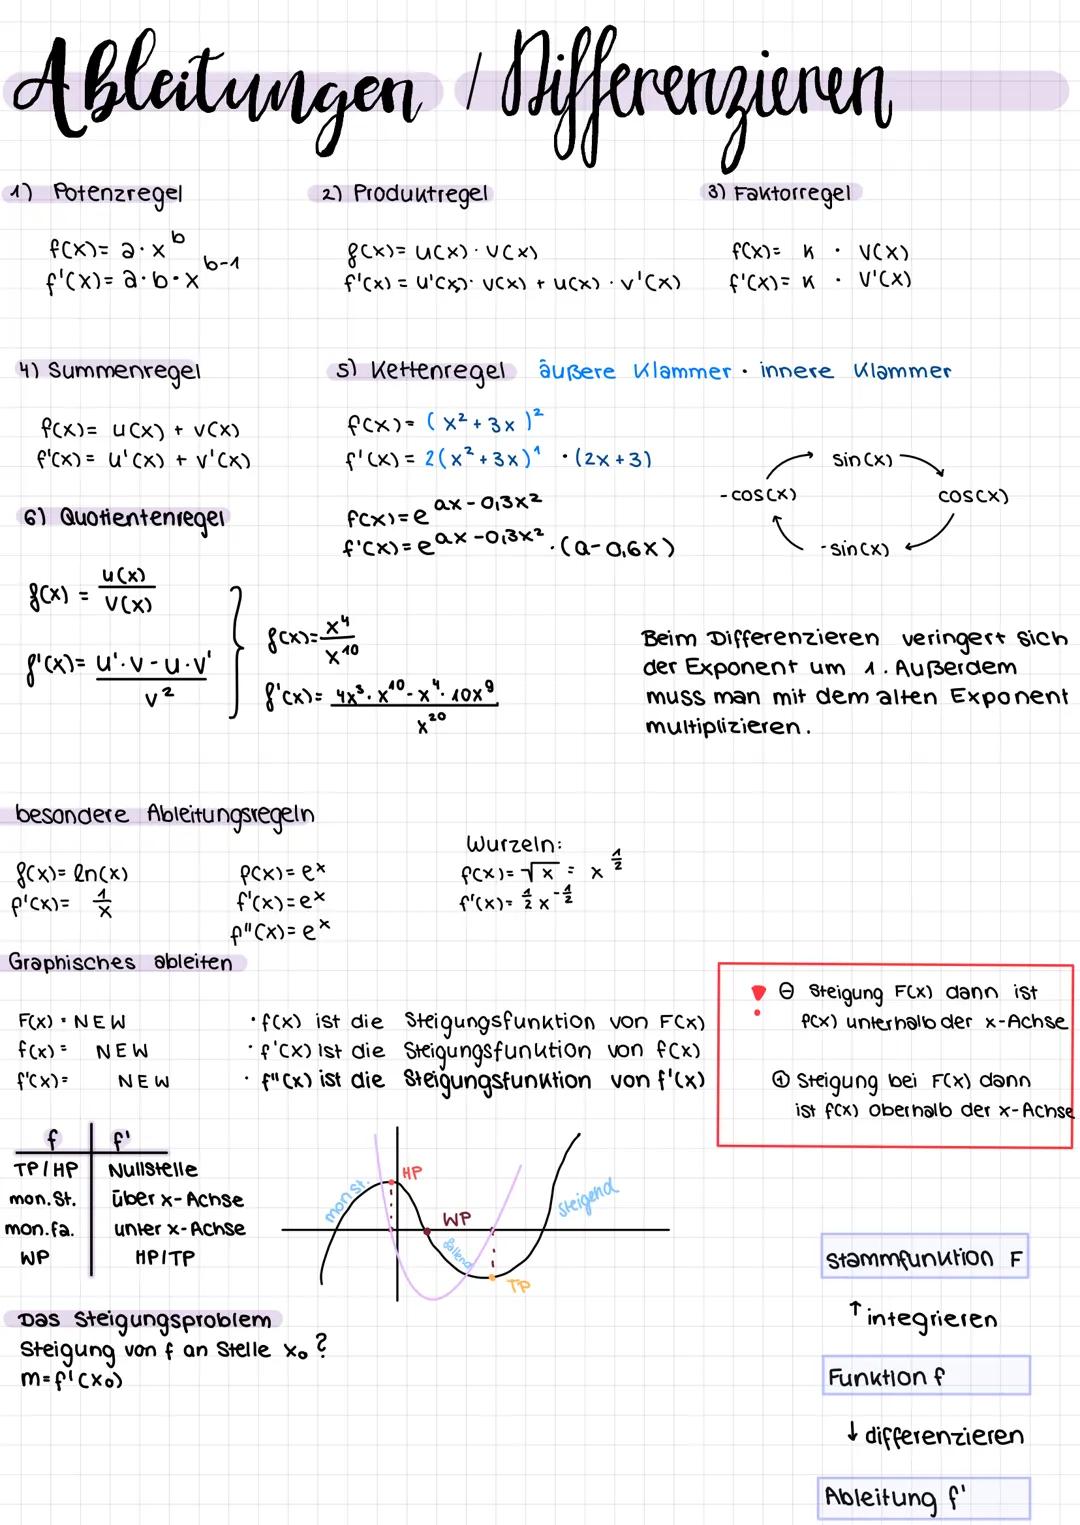 Ableitungen / Differenzieren
1) Potenzregel
f(x)= a·x^b
f'(x)= a·b·x^b-1
2) Produktregel
f(x)= u(x)·v(x)
f'(x)= u'(x)·v(x)+u(x)·v'(x)
3) Faktorregel
f(x)= k · v(x)
f'(x)= k · v'(x)
4) Summenregel
f(x)= u(x) + v(x)
f'(x)= u'(x) + v'(x)
5) Kettenregel äußere Klammer · innere Klammer
f(x)= (x²+3x)²
f'(x)= 2(x²+3x)¹ ·(2x+3)
f(x)=e^ax-0,3x²
f'(x)=e^ax-0,3x² ·(a-0,6x)
sin(x)
-cos(x) cos(x)
-sin(x)
6) Quotientenregel
f(x) = u(x)/v(x)
f'(x)= u'·v-u·v'/v²
f(x)= x⁴/x¹⁰
f'(x)= 4x³·x¹⁰-x⁴·10x⁹/x²⁰
Beim Differenzieren veringert sich
der Exponent um 1. Außerdem
muss man mit dem alten Exponent
multiplizieren.
besondere Ableitungsregeln
f(x)= ln(x)
f'(x)= 1/x
f(x)= e^x
f'(x)= e^x
f''(x)= e^x
Wurzeln:
f(x)= √x = x^1/2
f'(x)= 1/2 x^-1/2
Graphisches ableiten
F(x) = NEW
f(x) = NEW
f'(x)= NEW
·f(x) ist die Steigungsfunktion von F(x)
·f'(x) ist die Steigungsfunktion von f(x)
·f''(x) ist die Steigungsfunktion von f'(x)
! ⊖ Steigung F(x) dann ist
f(x) unterhalb der x-Achse
⊕ Steigung bei F(x) dann
ist f(x) oberhalb der x-Achse
f f'
TP/HP Nullstelle
mon.St. über x-Achse
mon.fa. unter x-Achse
WP HP/TP
mon St.
HP
WP
fallend
TP
steigend
Das Steigungsproblem
Steigung von f an Stelle x₀?
m=f'(x₀)
Stammfunktion F
↑ integrieren
Funktion f
↓ differenzieren
Ableitung f'